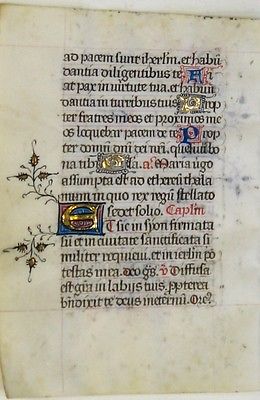 ad pacem sunt iherl̄m. et habū
dantia diligentibus te. Fi
at pax in uirtute tua. et habun
dantia in turribus tuis. Prop
ter fratres meos et proximos me
os loquebar pacem de te. Prop
ter domū dn̄i dei nr̄i. quesiui bo
na tibi. Gl̄a. a. Maria uirgo
assumpta est ad ethereū thala
mum in quo rex regū stellato
sedet solio. Caplm̄
Et sic in syon firmata
sū et in ciuitate sanctificata si
militer requieui. et in ierl̄m po
testas mea. deo gr̄s. ℣ Diffusa
est gr̄a in labijs tuis. Propterea
bn̄dixit te deus in eternū. Or̄o.